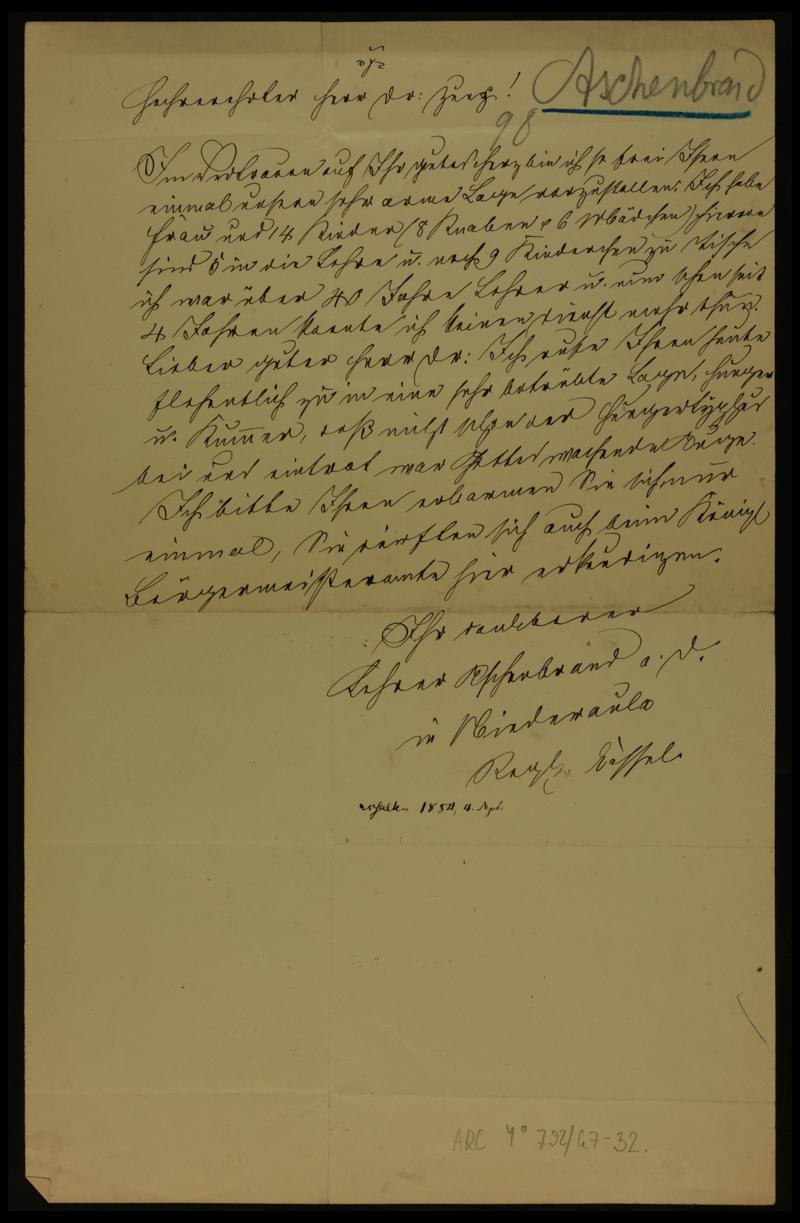 Hochverehrter Herr Dr: Zunz!
Aschenbrand
98
Im Vertrauen auf Ihr gutes Herz bin ich so frei Ihnen
einmal unsern sehr arme Lage vorzustellen. Ich habe
Frau und 14 Kinder (8 Knaben & 6 Mädchen) hiervon
sind 5 in die Lehre u. noch 9 Kinderchen zu Tische
ich war über 40 Jahre Lehrer u. nun schon seit
4 Jahren konnte ich keinen Dienst mehr thun.
Lieber guter Herr Dr: Ich rufe Ihnen heute
flehentlich zu in eine sehr betrübte Lage, Hunger
u. Kummer, daß nicht schon der Hungertyphus
bei uns eintrat war Gottes wachende Auge.
Ich bitte Ihnen erbarmen Sie sich nur
einmal, Sie dürften sich auch beim Königl
Bürgermeisteramte hier erkundigen.
Ihr dankbarer
Lehrer Aschenbrand a. D.
in Niederaula
Regbz. Cassel.
erhalten 1884, 4. Sept.
ARC 4° 792/G7-32.